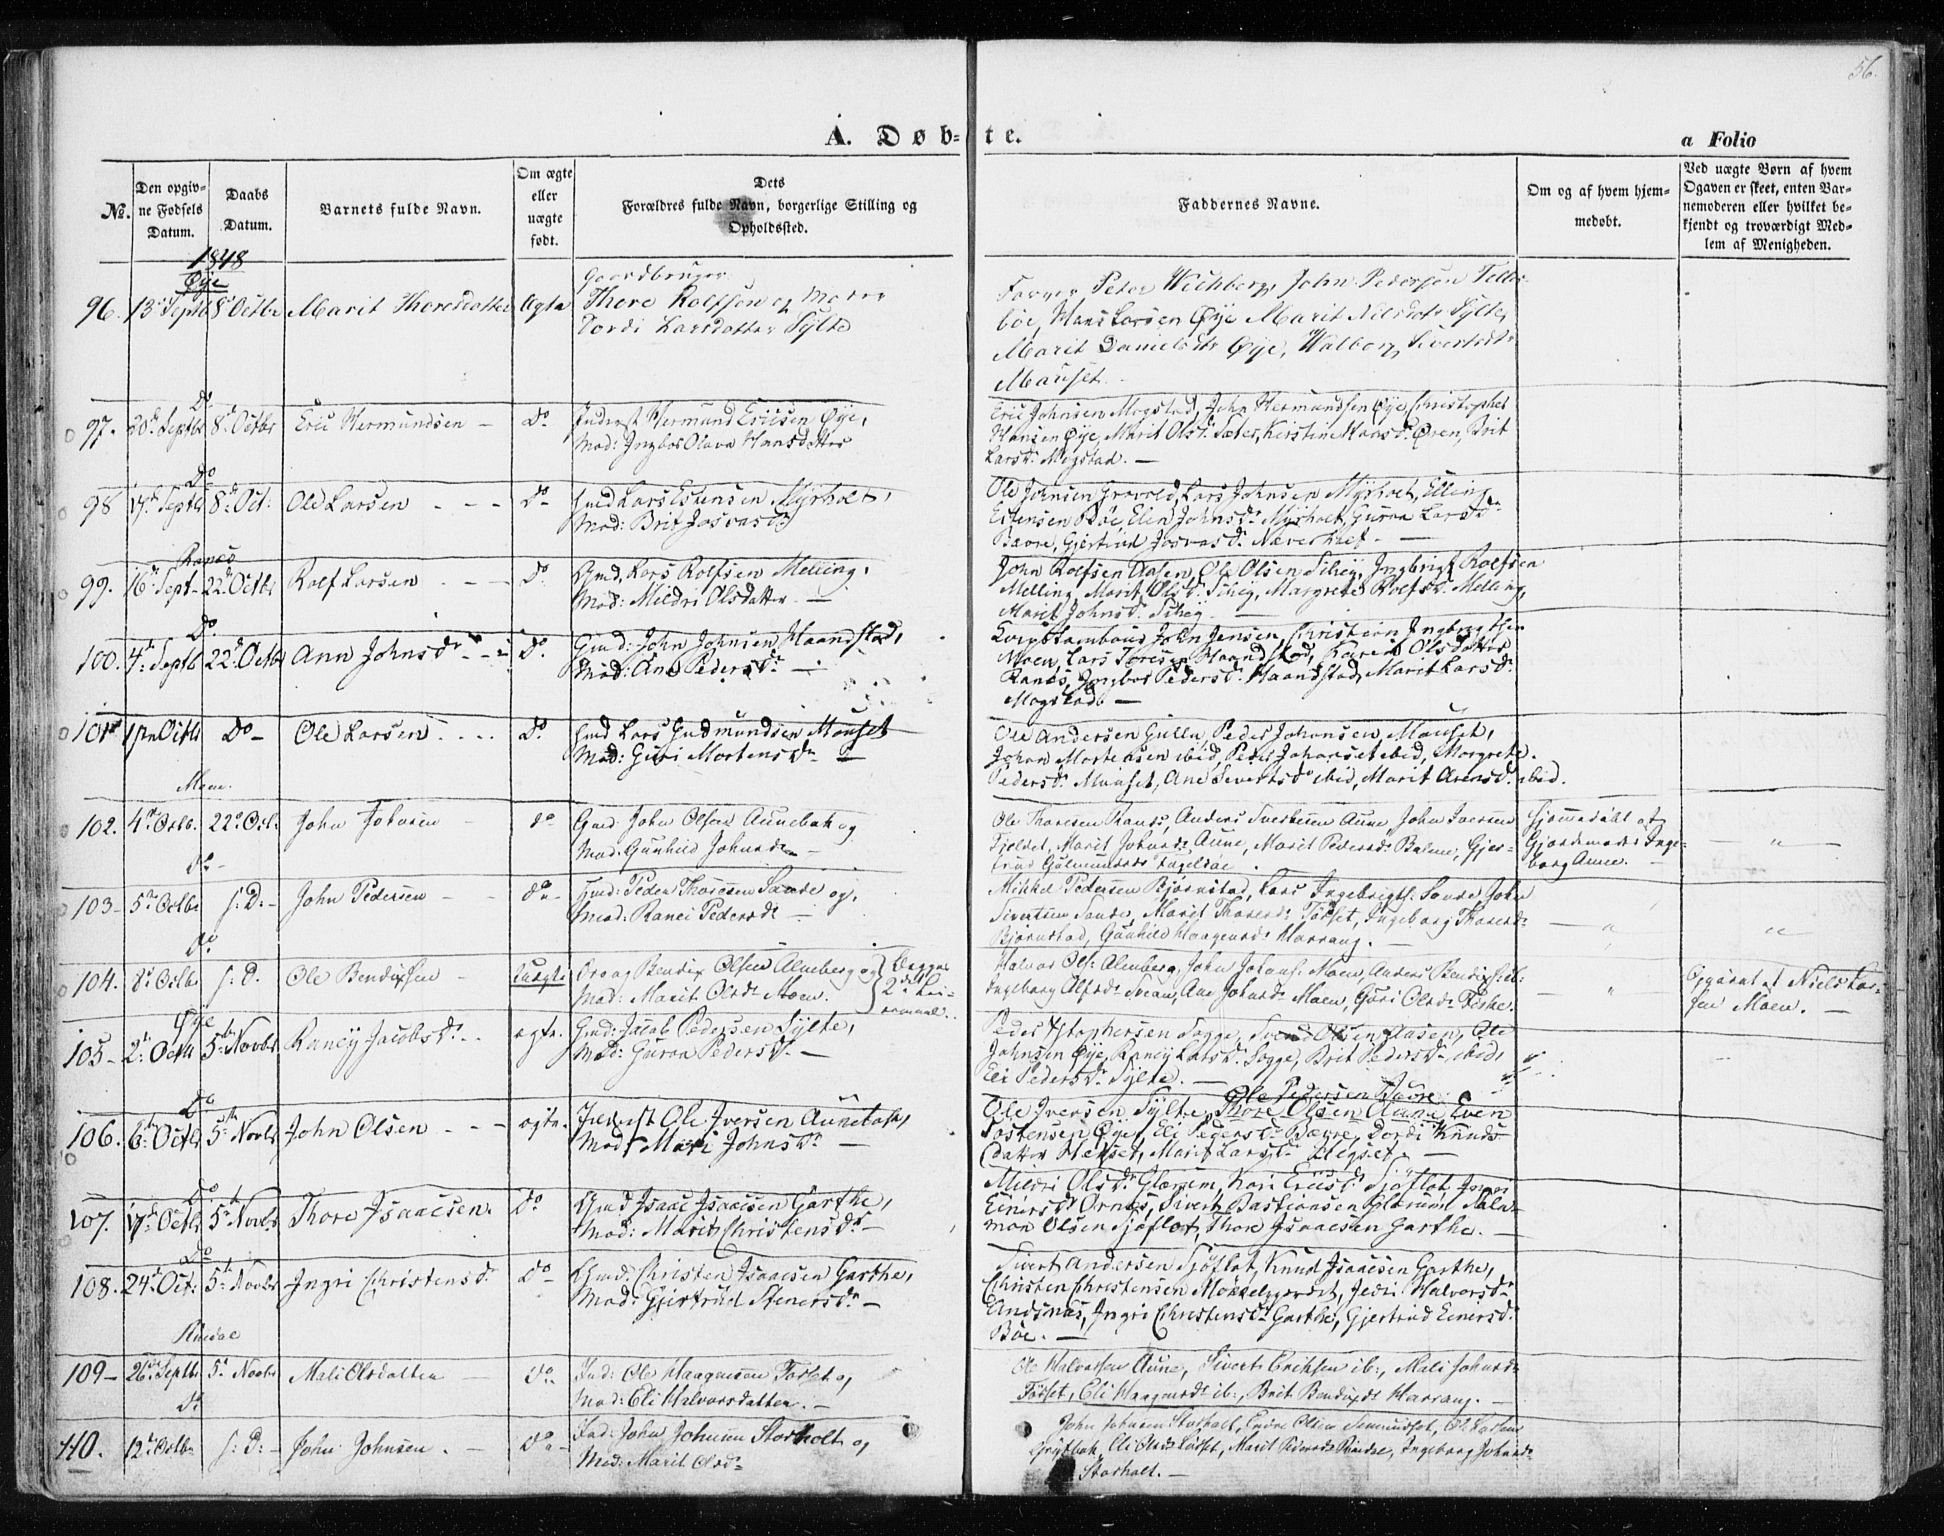 56.
A. Døb-te.
a Folio
No.
Den opgiv-
ne Fødsels
Datum.
Daabs
Datum.
Barnets fulde Navn.
Om ægte
eller
uægte
født.
Dets
Forældres fulde Navn, borgerlige Stilling og
Opholdssted.
Faddernes Navne.
Om og af hvem hjem-
medøbt.
Ved uægte Børn af hvem
Ogaven er skeet, enten Bar-
nemoderen eller hvilket be-
kjendt og troværdigt Med-
lem af Menigheden.
1848
Øye
96. 13 Septb 8 Octbr Marit Thoresdatter Ægte
Gaardbruger
Thore Rolfsøn og Moder
Dordi Larsdatter Sylte
Peter Wichberg, John Pedersøn Telle-
bøe, Hans Larsen Øye Marit Nilsdtr Sylte,
Marit Danielsdtr Øye, Walborg Siverts
Mauset.
Do
97. 20de Septbr 8de Octbr Eric Hermundsen - Do.
Inderst Hermund Ericsen Øye,
Mod: Ingbor Olava Hansdatter
Eric Johnsen Mogstad, John Hermundsen Øye, Christopher
Hansen Øye, Marit Olsdr. Sæter, Kerstine Hansdr. Øren, Brit
Larsdr. Mogstad. -
Do
98 17de Septbr 8de Oct: Ole Larsen - - - Do
Gmd Lars Estensen Myrholt,
Mod: Brit Josvasdr
Ole Johnsen Gravold, Lars Johnsen Myrholt, Elling
Estensen Bøe, Elen Johnsdr. Myrholt, Guroa Larsdr
Bævre, Gjertrud Josvasdr. Næverholt. -
Ranes
99. 16de Sept- 22de Octbr Rolf Larsen - - - Do.
Gmd. Lars Rolfsen Melling.
Mod: Mildri Olsdatter. -
John Rolfsen Aasen, Ole Olsen Settøy, Ingbrigt Rolfsen
Melling, Marit Olsdr. , Margrete Rolfsdr. Melling,
Marit Johnsdr.
Do.
100. 4de Septb 22de Octbr Ann Johnsdr. - - Do.
Gmd: John Johnsen Haandstad,
Mod: Ane Pedersdr. -
John Jensen, Christian Ingbrigtsen
Moen, Lars Toresen Haandstad, Karen Olsdatter
Ranes, Ingbor Pedersdr. Haandstad, Marit Larsdr.
Mogstad. -
101 1ste Octbr Do - Ole Larsen . . . . Do.
Gmd Lars Gudmundsen Mauset
Mod: Guri Mortensdr -
Ole Andersen Gullu, Peder Johansen Mauset,
Johan Mortensen ibid, Peder Johanset ibid, Margrete
Pedersdr. Mauset, Ane Sivertsdr ibid, Marit Arensdr. ibid.
Moen.
102. 4de Octb. 22de Oct. John Johnsen - do
Gmd John Olsen Aunebak og
Mod: Gunhild Johnsdr -
Ole Thoresen Ranes, Anders Sivertsen Aune John Iversen
Fjeldet, Marit Johnsdr. Aune, Marit Pedersdr. Balme, Gjer-
trud Gulmundsdr Engelsøe.
Hjemmedøbt af
Gjordemoder Inge-
borg Aune. -
- " -
do -
103 - 5te Octbr s: D: - John Pedersen - - do -
Gmd: Peder Thoresen Sande og,
Mod: Ranei Pedersdr -
Mikkel Pedersen Bjørnstad, Lars Ingebrigts: Sande, John
Sivertsen Sande, Marit Thoresdr. Tørset, Ingeborg Thoresdr
Bjørnstad, Gunhild Haagensdr. Harrang. -
- "
"
do
104. 8de Octbr s: D. Ole Bendixsen - Uægte
Bendix Olsen Almberg og
Mod: Marit Olsdr. Moen.
Begges
2det Lei-
ermaal.
Halvor Ols: Almberg, John Johans: Moen, Anders Bendixs: ib:
Ingeborg Olsdr. Sveian, Ane Johnsdr. Moen, Guri Olsdr. Fiske.
- "
Opgivet af Niels Lar-
sen Moen. -
Øye
105 - 2de Octb 5te Novbr Raney Jacobsdr. . . ægte.
Gmd: Jacob Pedersen Sylte,
Mod: Guroa Pedersdr. -
Peder Christophersen Sogge, Svend Olsen Aasen, Ole
Johnsen Øye, Raney Larsdr. Sogge, Brit Pedersdr. ibid,
Eli Pedersdr. Sylte. -
Do
106. 6te Octbr 5te Novbr John Olsen - - - ægte.
Inderst Ole Iversen Aunetøk,
Mod: Mari Johnsdr. -
Ole Pedersen Bævre
Ole Iversen Sylte, Thore Olsen Aune, Even
Tostensen Øye, Eli Pedersdr. Bævre, Dordi Knuds-
datter Hegset, Marit Larsdr. Hegset. -
Do.
107. 17de Octbr 5te Novbr Thore Isaacsen. Do
Gmd Isaac Isaacsen Garthe,
Mod: Marit Christensdr. -
Mildri Olsdr. Glærum, Kari Ericsdr. Sjøflot, Ingri
Einersdr Ornes, Sivert Bastiansen Glærum, Salo-
mon Olsen Sjøflot, Thore Isaacsen Garthe. -
Do
108. 24de Oct: 5te Novbr Ingri Christensdr Do -
Gmd: Christen Isaacsen Garthe,
Mod: Gjertrud Stenersdr. -
Sivert Andersen Sjøflot, Knud Isaacsen Garthe,
Christen Christensen Møkkelgaardet, Jedri Halvorsdr.
Andsnes, Ingri Christensdr. Garthe, Gjertrud Einersdr.
Bøe. -
Rindal
109 - 26de Septbr 5te Novbr Mali Olsdatter - Do.
Ind: Ole Haagensen Torset og
Mod: Eli Halvorsdatter. -
Ole Halvorsen Aune, Sivert Erichsen ib:, Mali Johnsdr
Tørset, Eli Haagensdr. ib:, Brit Bendixsdr Harrang. -
do
110. 12te Octbr s: D: - John Johnsen. - Do -
Ind: John Johnsen Storholt og
Mod: Marit Olsdr -
John Johnsen Storholt, Endre Olsen Semundset, Ole Larsen
Grytbak, Eli Olsdr Tørset, Marit Pedersdr Rindal, Ingeborg Johnsdr
Storholt. -